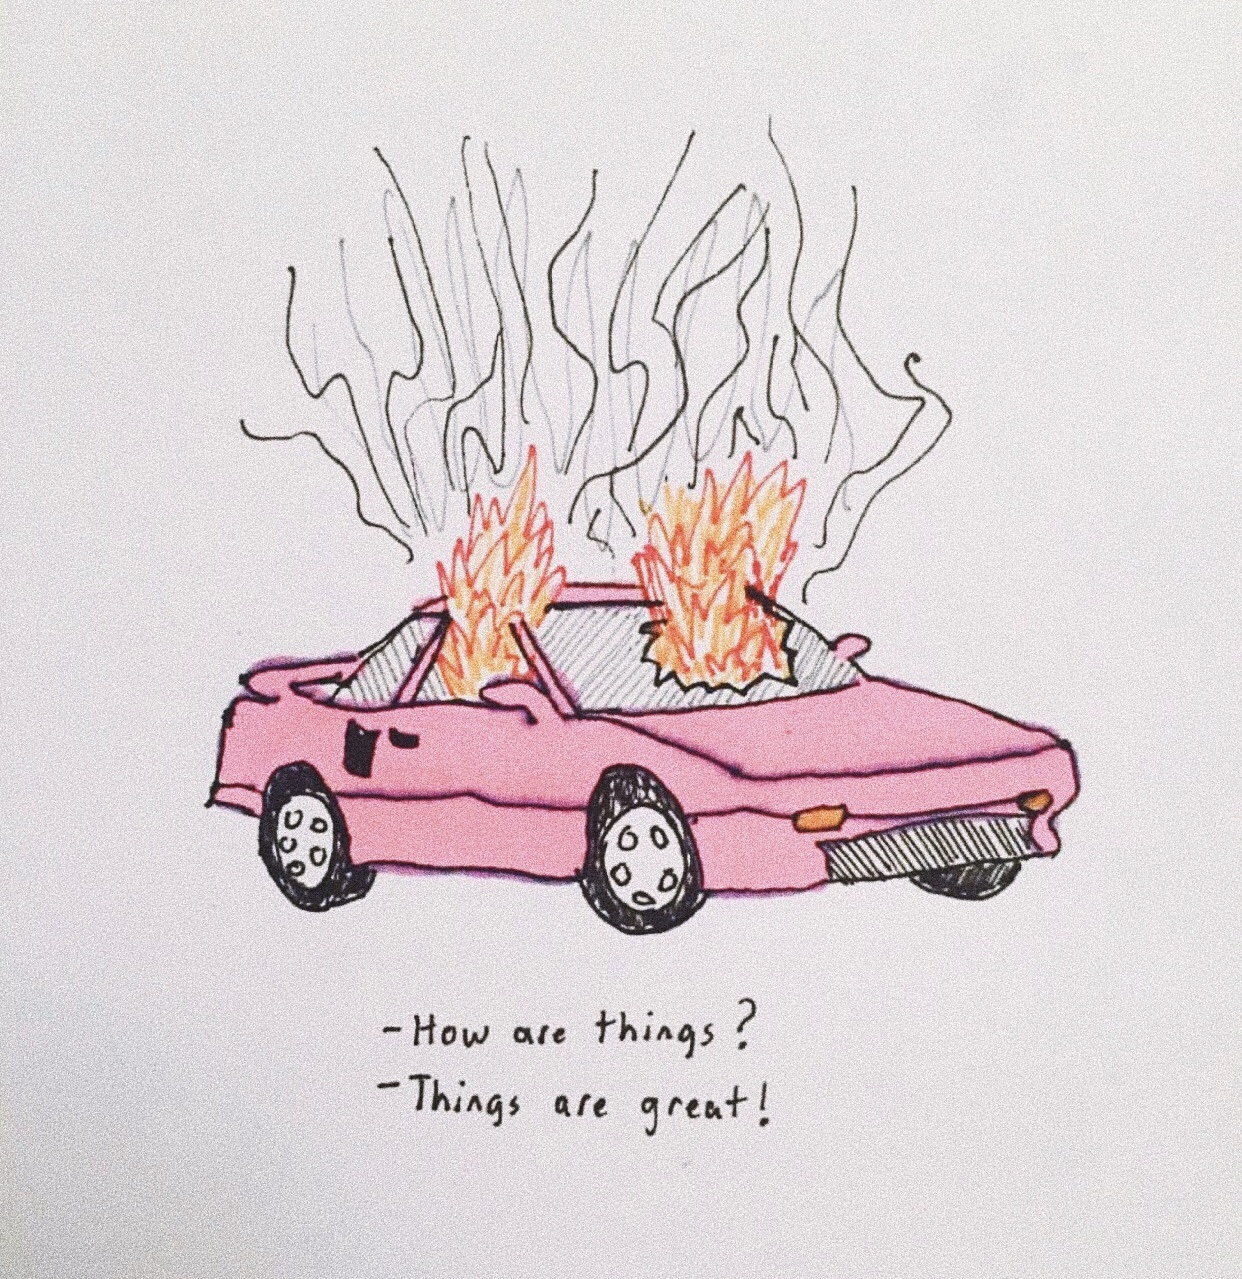 -How are things?
-Things are great!